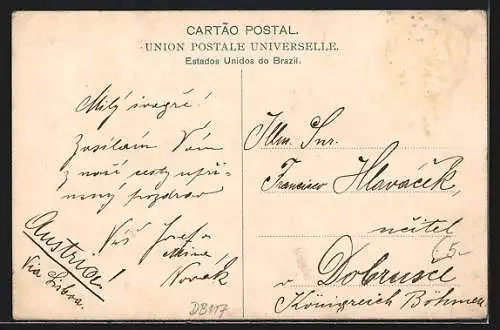 CARTÃO POSTAL.
UNION POSTALE UNIVERSELLE.
Estados Unidos do Brazil.
Milý švagře!
Zasílám Vám
z naší cesty upří-
mný pozdrav
Váš Josef a
Mina
Novák
Austria!
Via Lisboa.
Illm. Snr.
Francisco Hlaváček,
učitel
v Dobrusce
Königreich Böhmen
65-
DB117